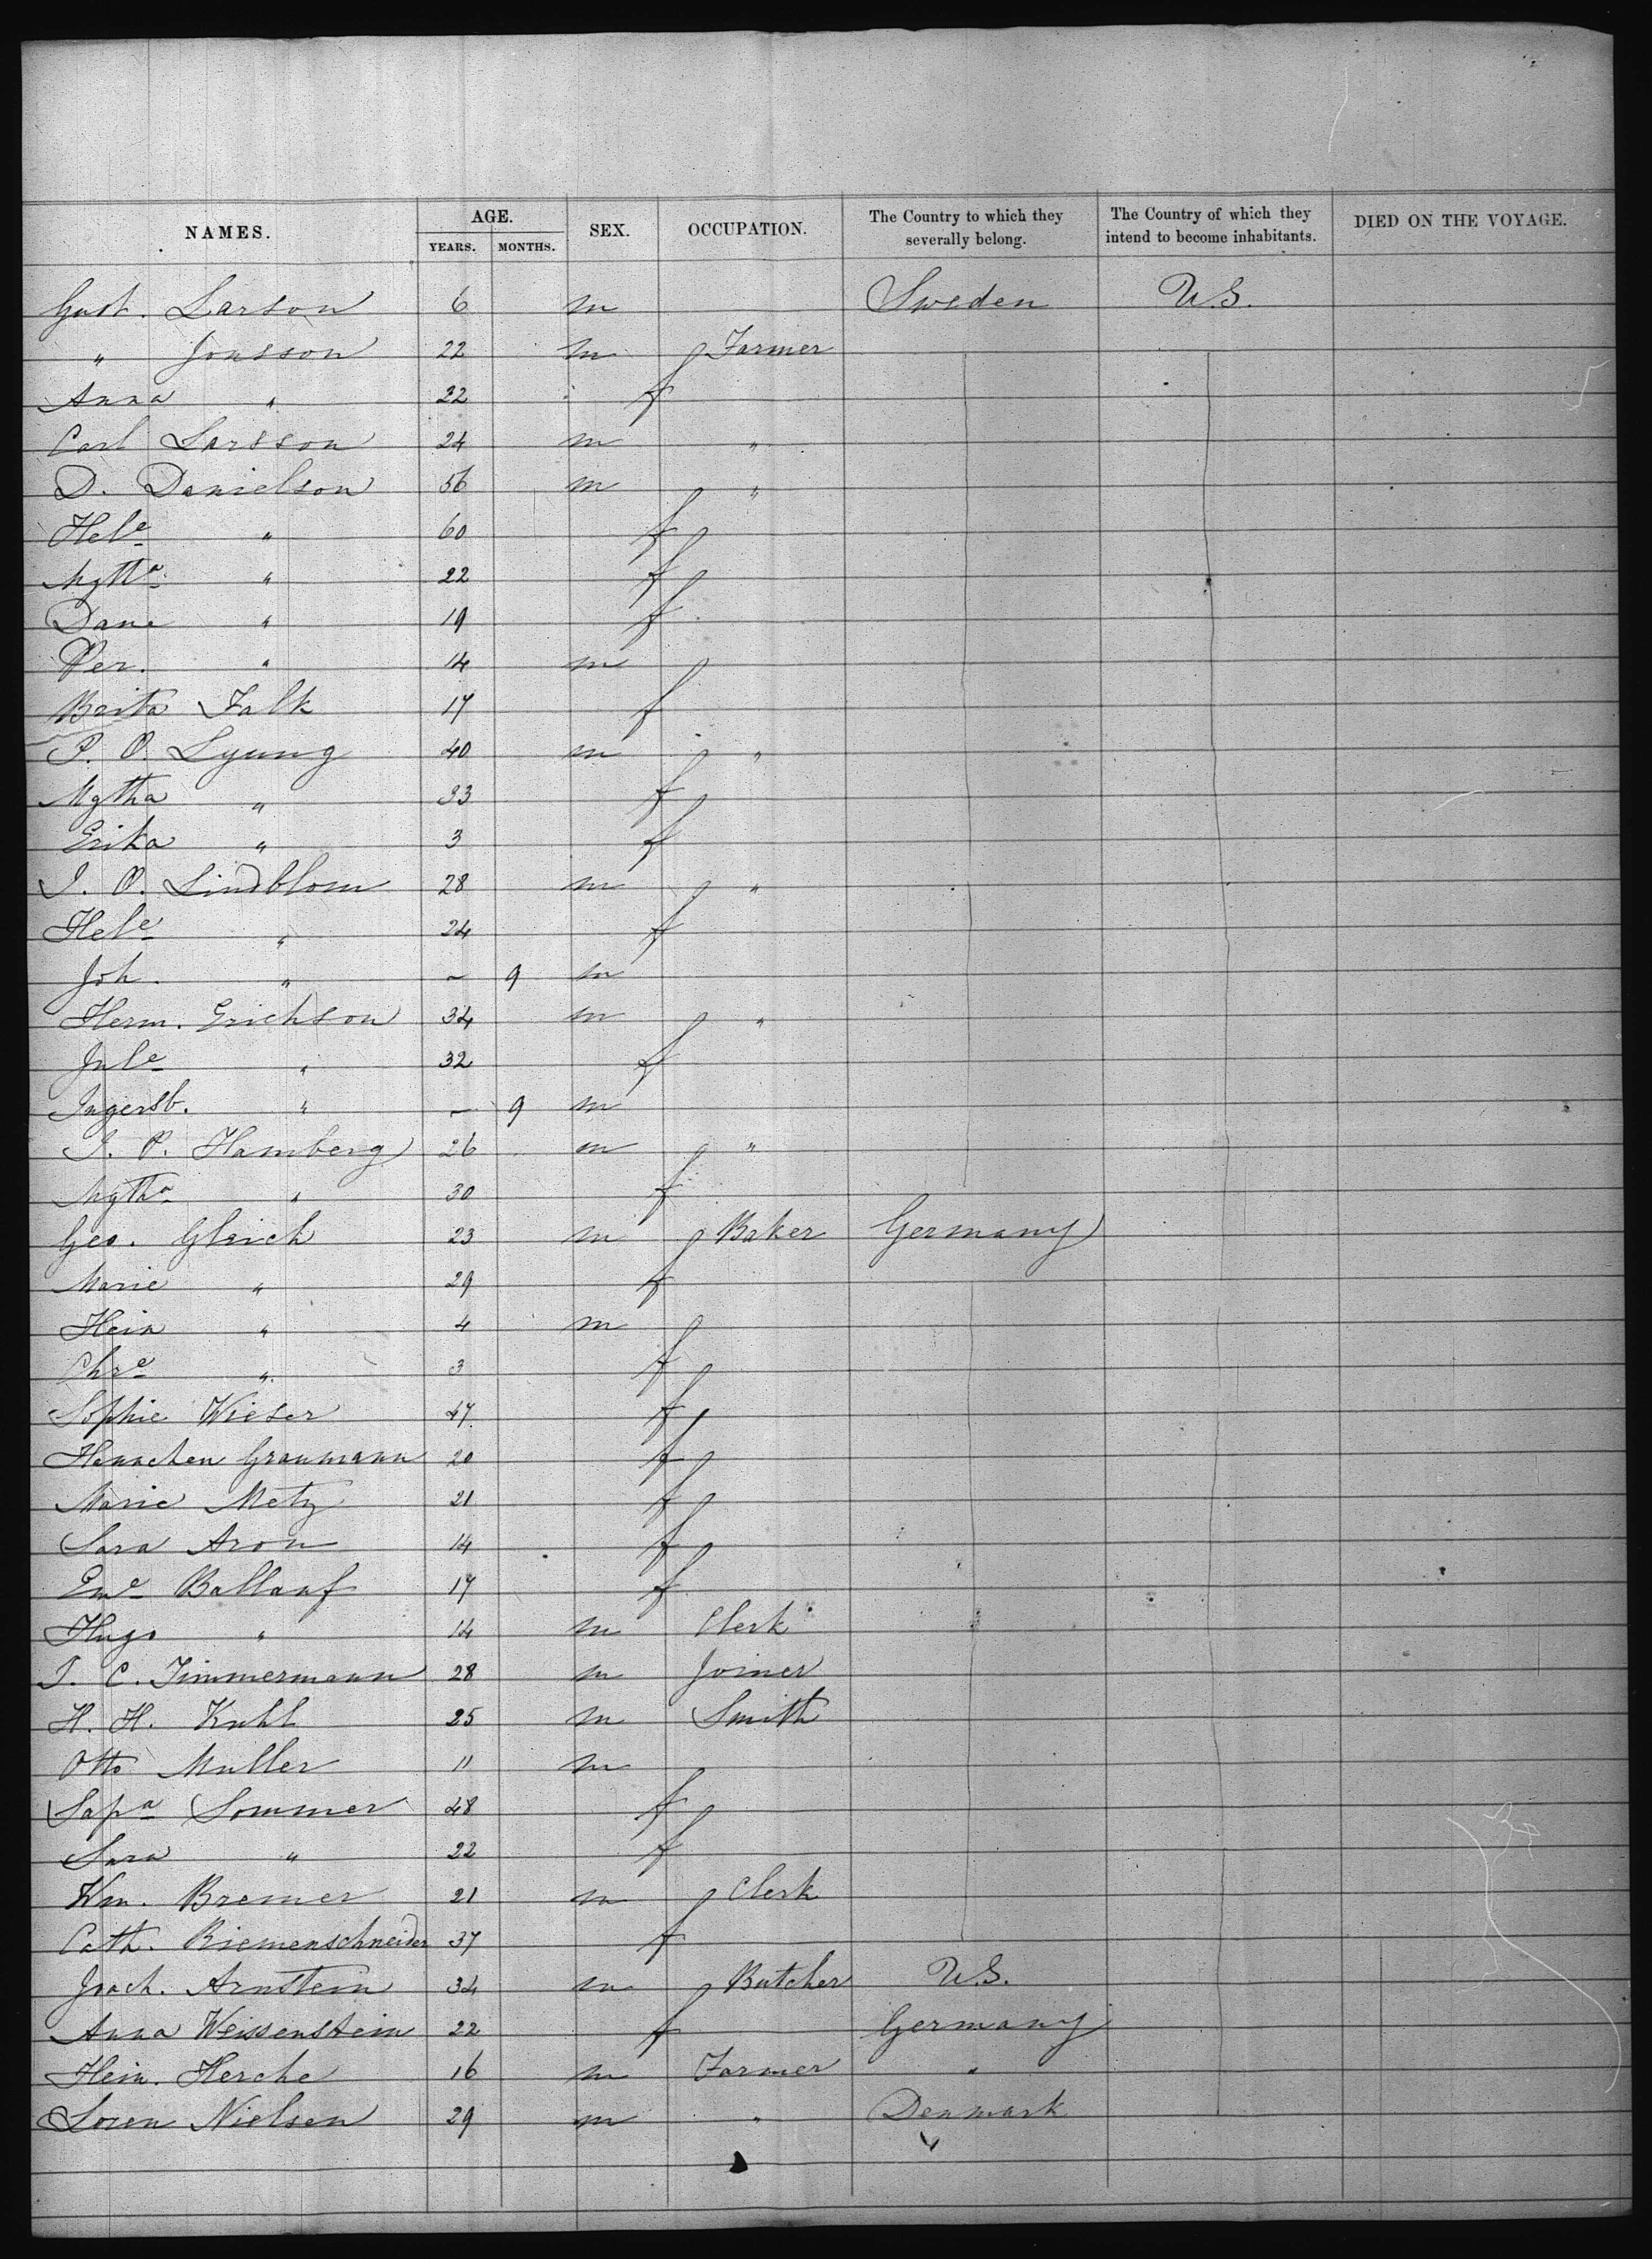 NAMES. AGE. YEARS. MONTHS. SEX. OCCUPATION. The Country to which they severally belong. The Country of which they intend to become inhabitants. DIED ON THE VOYAGE.
Gust. Larson 6 m Sweden U.S.
" Jonsson 22 m Farmer
Anna " 22 f
Carl Larsson 24 m "
D. Danielson 56 m "
Hele " 60 f
Mgtta " 22 f
Dane " 19 f
Per. " 14 m
Brita Falk 17 f
P. O. Lyung 40 m "
Mgtha " 33 f
Erika " 3 f
J. O. Lindblom 28 m "
Hele " 24 f
Joh. " - 9 m
Herm. Erichson 34 m "
Jule " 32 f
Ingersb. " - 9 m
J. P. Hamberg 26 m "
Mgtha " 30 f
Geo. Gleich 23 m Baker Germany
Marie " 29 f
Hein " 4 m
Chre " 3 f
Sophie Wieser 47 f
Hannchen Graumann 20 f
Marie Metz 21 f
Sara Aron 14 f
Eme Ballauf 17 f
Hugo " 14 m Clerk
J. C. Zimmermann 28 m Joiner
H. H. Kuhl 25 m Smith
Otto Muller 11 m
Sommer 48 f
Sara " 22 f
Wm. Bremer 21 m Clerk
Cath. Riemenschneider 37 f
Joach. Arnstein 34 m Butcher U.S.
Anna Weissenstein 22 f Germany
Hein. Herche 16 m Farmer "
Soren Nielsen 29 m " Denmark